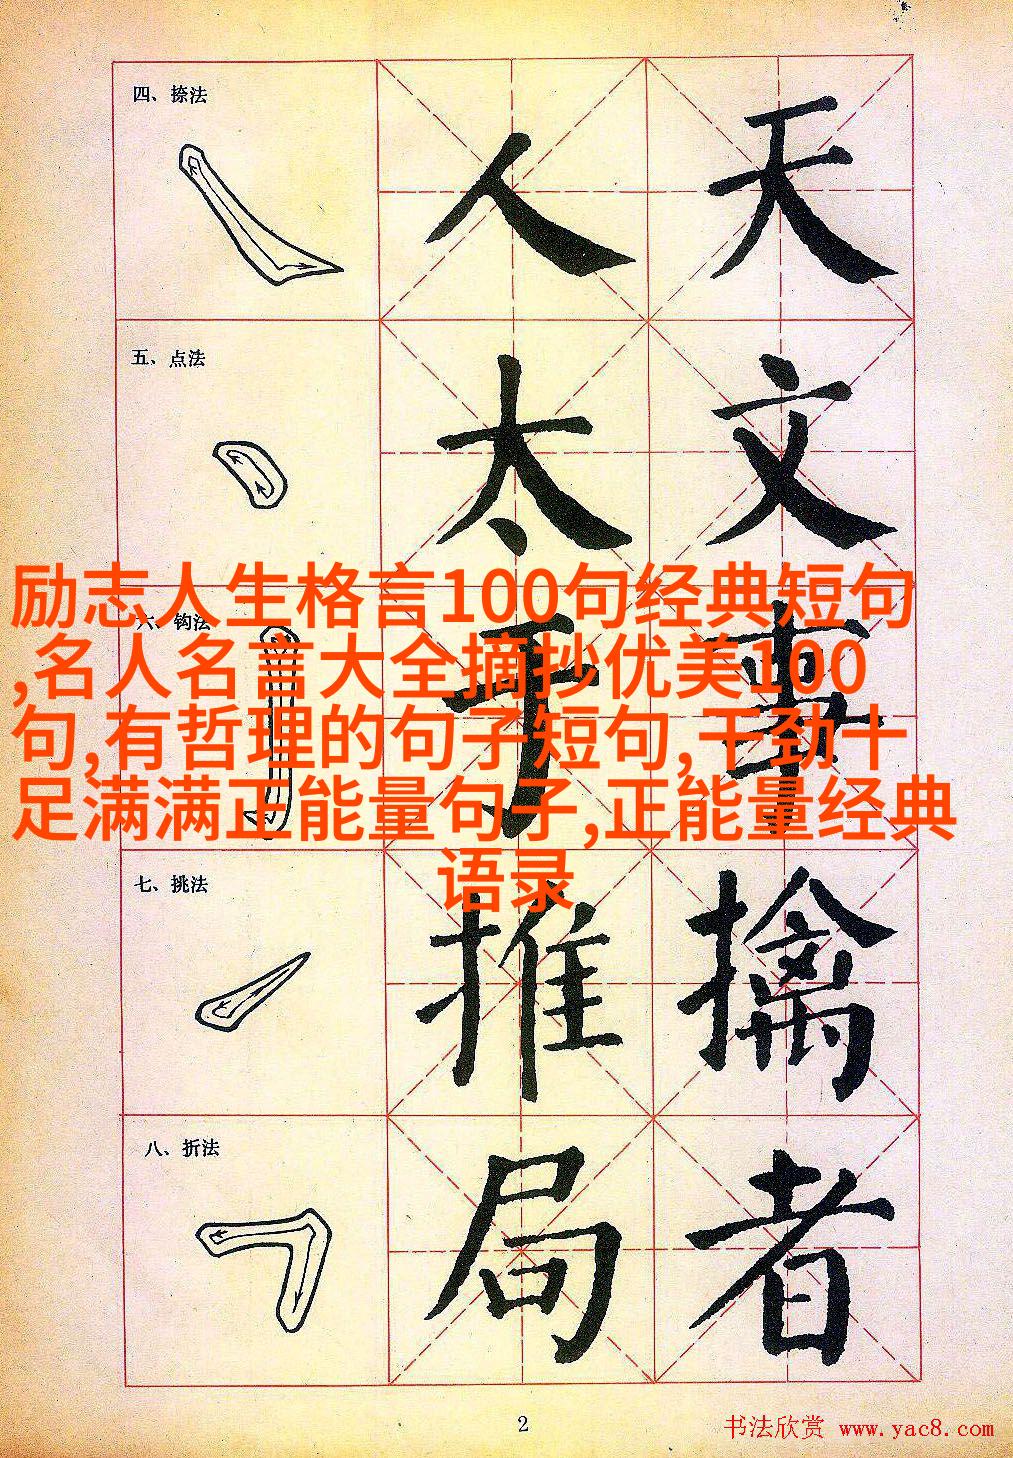 四、捺法
人 天
五、点法
太 文
励志人生格言100句经典短句
六、钩法
,名人名言大全摘抄优美100
于 事
句,有哲理的句子短句,干劲十
足满满正能量句子,正能量经典
语录
七、挑法
推 擒
八、折法
局 者
2
书法欣赏 www.yac8.com